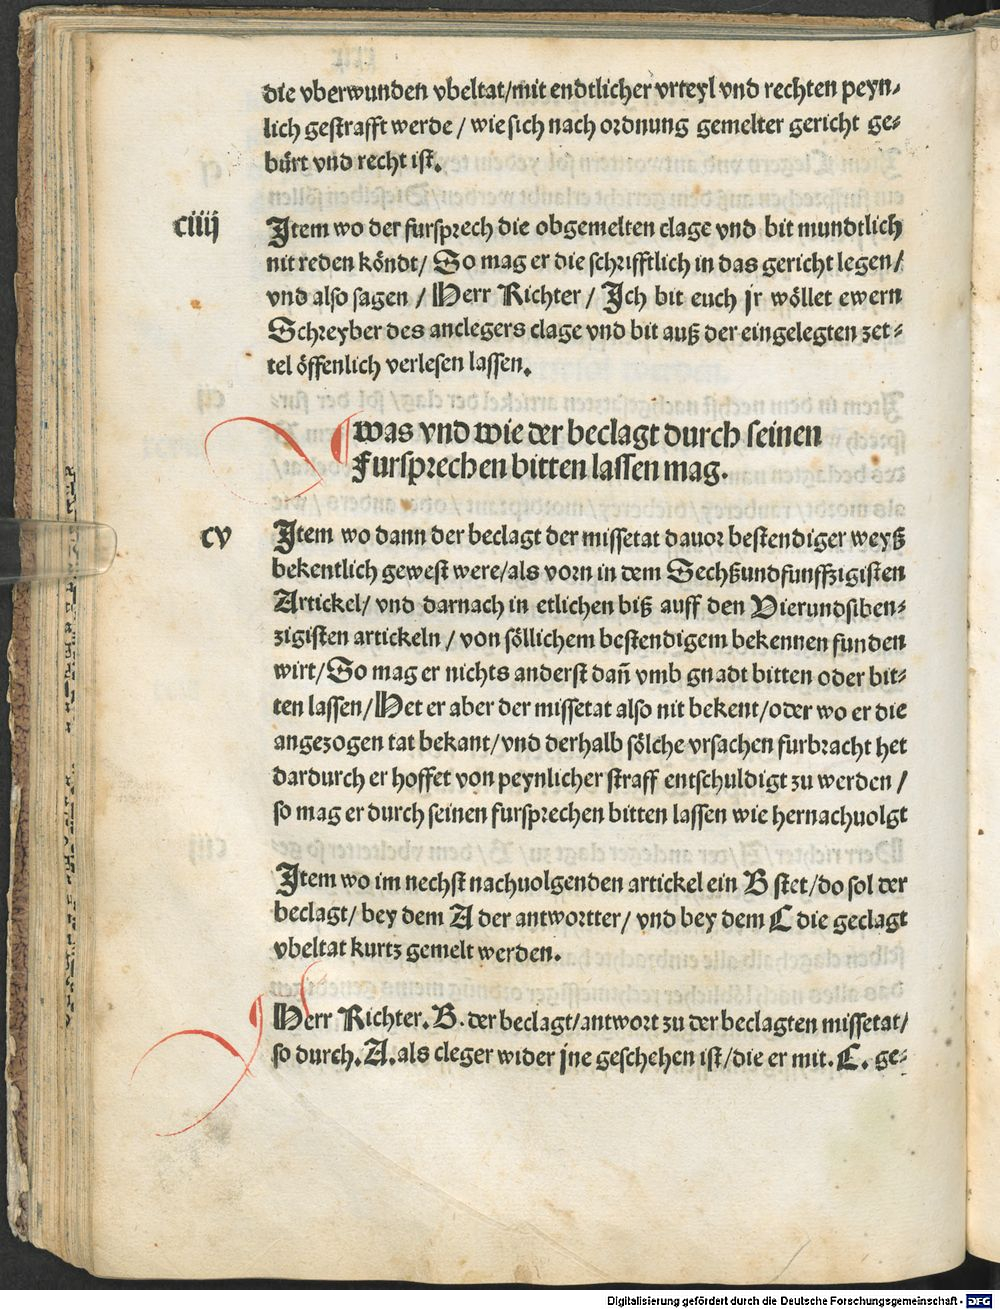 die vberwunden vbeltat/mit endtlicher vrteyl vnd rechten peyn⸗
lich gestrafft werde / wie sich nach ordnung gemelter gericht ge⸗
bürt vnd recht ist.
ciiij
Item wo der fursprech die obgemelten clage vnd bit mundtlich
nit reden köndt/ So mag er die schrifftlich in das gericht legen/
vnd also sagen / Herr Richter / Ich bit euch jr wöllet ewern
Schreyber des anclegers clage vnd bit auß der eingelegten zet⸗
tel öffenlich verlesen lassen.
was vnd wie der beclagt durch seinen
Fursprechen bitten lassen mag.
cv
Item wo dann der beclagt der missetat dauor bestendiger weyß
bekentlich gewest were/als vorn in dem Sechßundfunffzigisten
Artickel/ vnd darnach in etlichen biß auff den Vierundsiben⸗
zigisten artickeln / von söllichem bestendigem bekennen funden
wirt/ So mag er nichts anderst dañ vmb gnadt bitten oder bit⸗
ten lassen/ Het er aber der missetat also nit bekent/oder wo er die
angezogen tat bekant/vnd derhalb sölche vrsachen furbracht het
dardurch er hoffet von peynlicher straff entschuldigt zu werden /
so mag er durch seinen fursprechen bitten lassen wie hernachuolgt
Item wo im nechst nachuolgenden artickel ein B stet/do sol der
beclagt/ bey dem A der antwortter/ vnd bey dem C die geclagt
vbeltat kurtz gemelt werden.
Herr Richter. B. der beclagt/antwort zu der beclagten missetat/
so durch. A. als cleger wider jne geschehen ist/die er mit. C. ge⸗
Digitalisierung gefördert durch die Deutsche Forschungsgemeinschaft - DFG